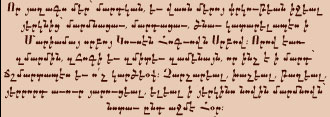 Որ յաղագս մեր՝ մարդկան, եւ վասն մերոյ փրկութեան իջեալ
յերկնից մարմնացաւ, մարդացաւ, ծնաւ կատարելապէս ի
Մարիամայ սրբոյ, Կուսէն Հոգւովն Սրբով: Որով էառ
զմարմին, զՀոգի եւ զմիտ եւ զամենայն, որ ինչ է ի մարդ՝
Ճշմարտապէս եւ ոչ կարծեօք: Չարչարեալ, խաչեալ, թաղեալ,
յերրորդ աւուր յարուցեալ, ելեալ ի յերկինս նովին մարմնովն
նստաւ ընդ աջմէ Հօր: